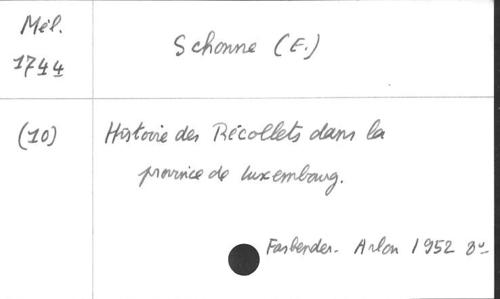 Mél.
1744
Schonne (E.)
(10)
Histoire des Récollets dans la
province de Luxembourg.
Fasbender. Arlon 1952 8º